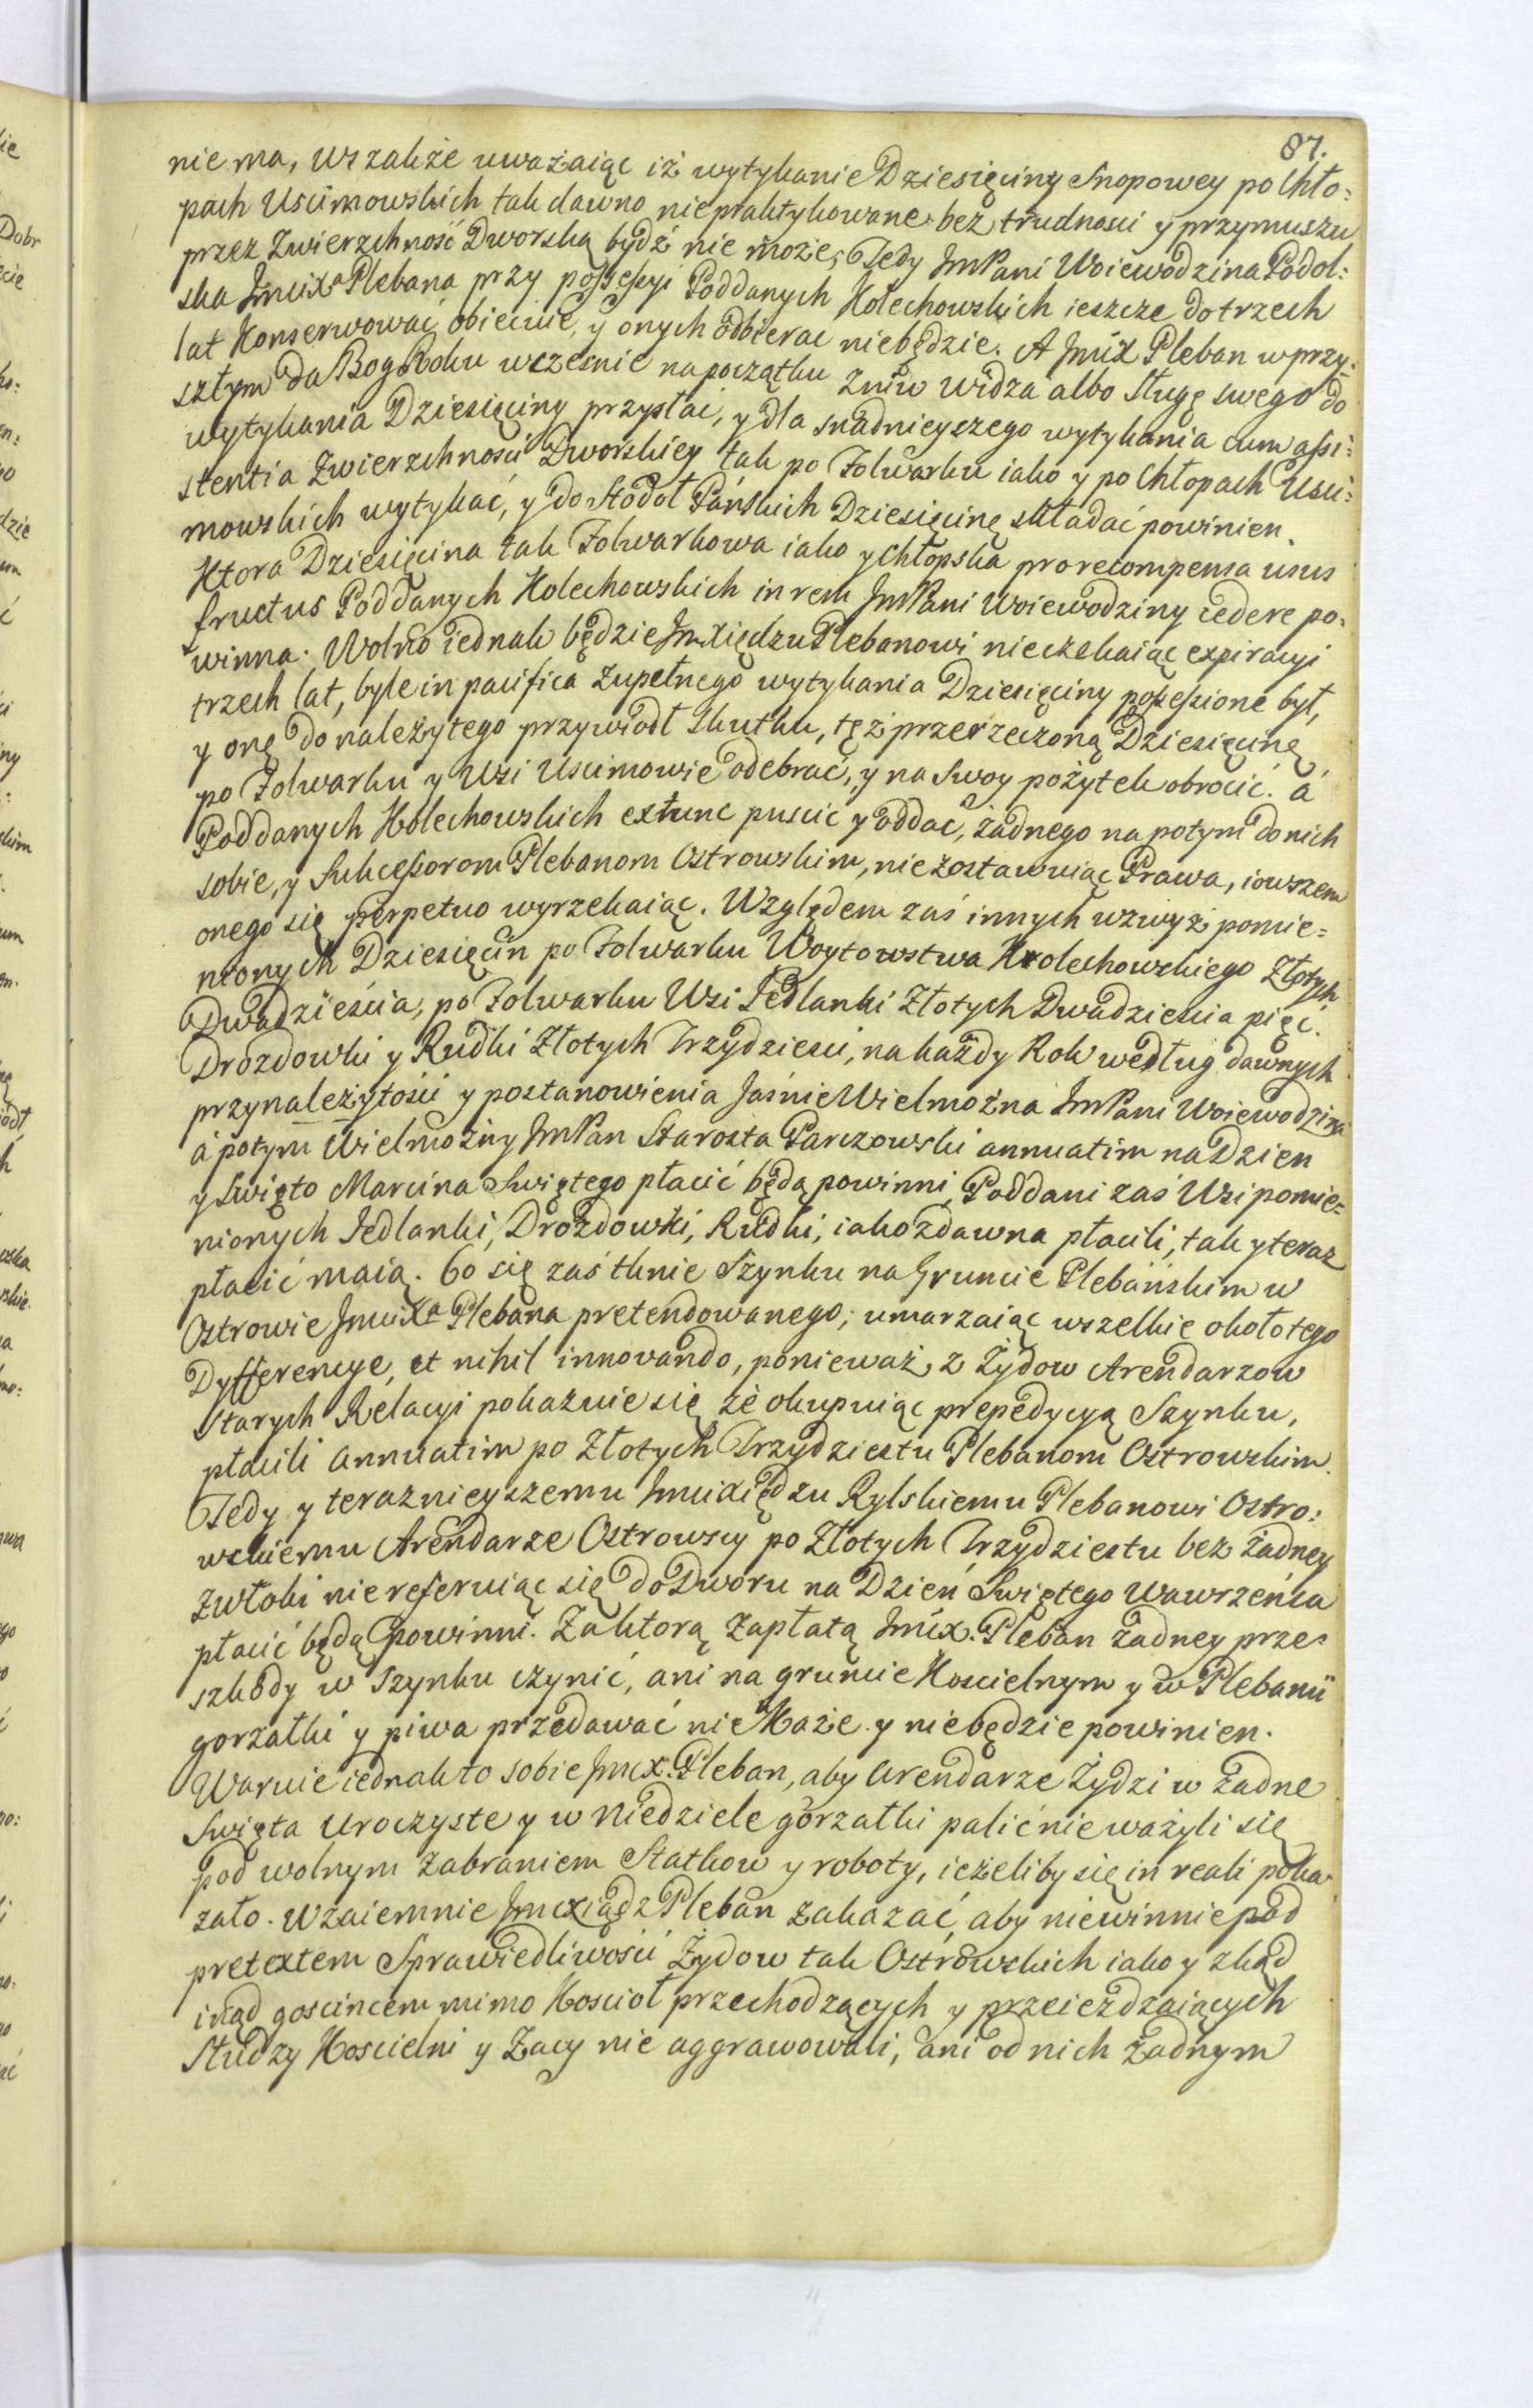 87.
nie ma, wszakże uważaiąc iż wytykanie Dziesięciny Snopowey po Chło:
pach Uscimowskich tak dawno niepraktykowane bez trudnosci y przymuszu
przez Zwierzchność Dworską bydź nie może, Tedy JmPani Woiewodzina Podol:
ska Jmcixa Plebana przy possessyi Poddanych Kolechowskich ieszcze do trzech
lat Konserwować obiecuie, y onych odbierac niebędzie. A Jmix Pleban w przy:
szłym da Bog Roku wczesnie na początku Zniw Widza albo Sługę swego do
wytykania Dziesięciny przysłać, y dla snadnieyszego wytykania cum assi:
stentia Zwierzchności Dworskiey tak po Folwarku iako y po Chłopach Usci:
mowskich wytykać, y do Stodoł Pańskich Dziesięcinę składać powinien.
Ktora Dziesięcina tak Folwarkowa iako y Chłopska pro recompensa usus
fructus Poddanych Kolechowskich in rem JmPani Woiewodziny cedere po:
winna. Wolno iednak będzie Jmxiędzu Plebanowi nieczekaiąc expiracyi
trzech lat, byle in pacifica Zupełnego wytykania Dziesięciny possessione był,
y onę do należytego przywiodł Skutku, tęż przerzeczoną Dziesięcinę
po Folwarku y Wsi Uscimowie odebrać, y na Swoy pożytek obrocić. á
Poddanych Kolechowskich extunc puscic y oddac, żadnego napotym do nich
sobie, y Sukcessorom Plebanom Ostrowskim, nie zostawuiąc Prawa, iowszem
onego się perpetuo wyrzekaiąc. Względem zaś innych wzwyż pomie=
nionych Dziesięcin po Folwarku Woytowstwa Krolechowskiego Złotych
Dwadzieścia, po Folwarku Wsi Jedlanki Złotych Dwadziescia pięć.
Drozdowki y Rudki Złotych Trzydziesci, na każdy Rok według dawnych
przynależytości y postanowienia Jaśnie Wielmożna JmPani Woiewodzina
á potym Wielmożny JmPan Starosta Parczowski annuatim na Dzien
y Swięto Marcina Swiętego płacić będą powinni, Poddani zaś Wsi pomie=
nionych Jedlanki, Drozdowki, Rudki, iako zdawna płacili, tak y teraz
płacić maią. Co się zaś tknie Szynku na Gruncie Plebańskim w
Ostrowie Jmcixa Plebana pretendowanego; umarzaiąc wszelkie około tego
Dyfferencye, et nihil innovando, ponieważ z Żydow Arendarzow
Starych Relacyi pokazuie się że okupuiąc prepedycyą Szynku,
płacili annuatim po Złotych Trzydziestu Plebanom Ostrowskim.
Tedy y teraznieyszemu Jmcixiędzu Rylskiemu Plebanowi Ostro:
wskiemu Arendarze Ostrowscy po Złotych Trzydziestu bez żadney
zwłoki nie referuiąc się do Dworu na Dzień Swiętego Wawrzeńca
płacić będą powinni. Za ktorą zapłatą Jmix. Pleban żadney prze:
szkody w Szynku czynić, ani na gruncie Koscielnym y w Plebanii
gorzałki y piwa przedawać nie Każe y niebędzie powinien.
Waruie iednak to sobie Jmcx. Pleban, aby Arendarze Żydzi w żadne
Swięta Uroczyste y w Niedziele gorzałki palić nieważyli się
pod wolnym zabraniem Statkow y roboty, ieżeliby się in reali poka:
zało. Wzaiemnie Jmcxiądz Pleban zakazać, aby niewinnie pod
pretextem Sprawiedliwości Żydow tak Ostrowskich iako y zkąd
inąd goscincem mimo Kościoł przechodzących y przeieżdzaiących
Słudzy Koscielni y Żacy nie aggrawowali, ani od nich żadnym